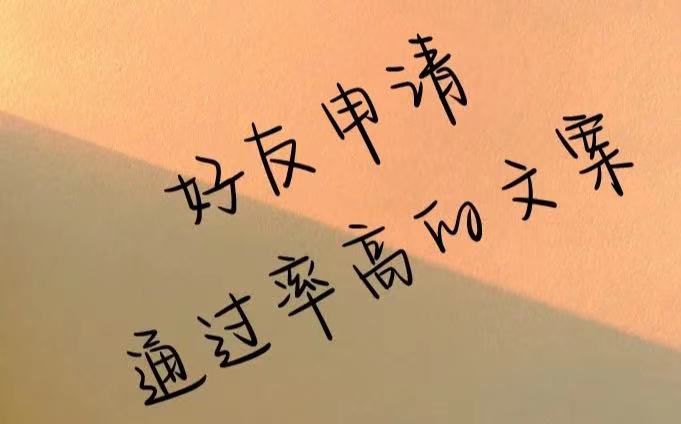 好友申请
通过率高的文案